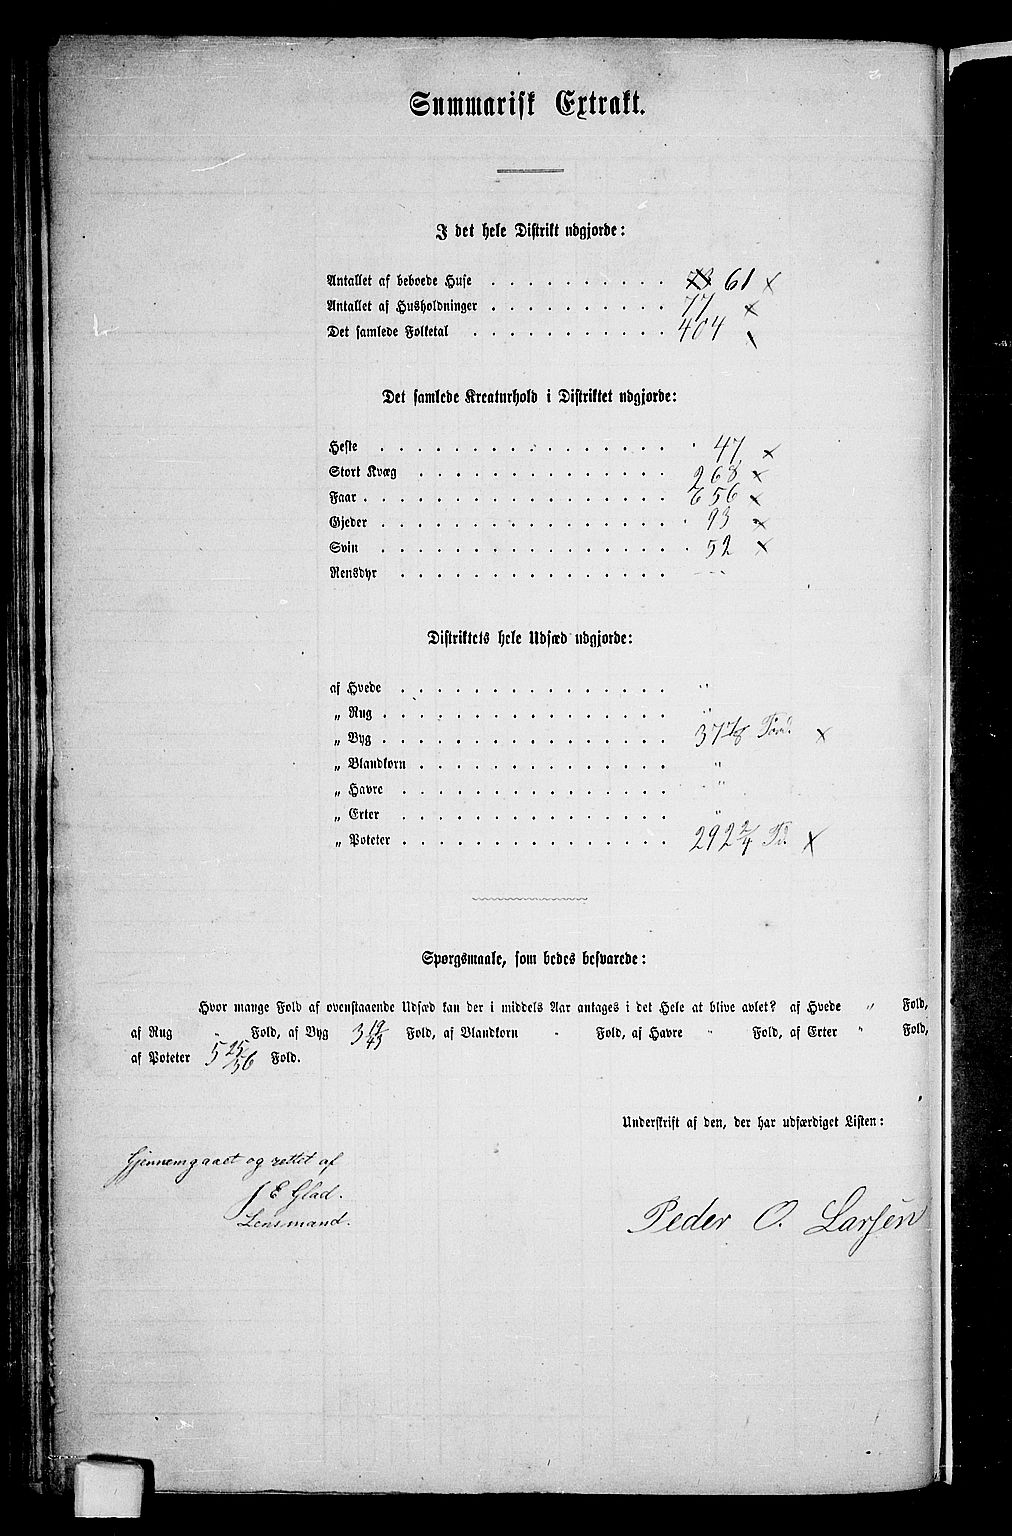 Summarisk Extrakt.
I det hele Distrikt udgjorde:
Antallet af beboede Huse . . . . . . . . . . 61 ×
Antallet af Husholdninger . . . . . . . . . . 77 ×
Det samlede Folketal . . . . . . . . . . . 404
Det samlede Kreaturhold i Distriktet udgjorde:
Heste . . . . . . . . . . . . . . . 47 ×
Stort Kvæg . . . . . . . . . . . . . 268 ×
Faar . . . . . . . . . . . . . . . . 656 ×
Gjeder . . . . . . . . . . . . . . . 93 ×
Svin . . . . . . . . . . . . . . . 52 ×
Rensdyr . . . . . . . . . . . . . . ---
Distriktets hele Udsæd udgjorde:
af Hvede . . . . . . . . . . . . . . "
„ Rug . . . . . . . . . . . . . . . "
„ Byg . . . . . . . . . . . . . . . 37 7/8 Tønd. ×
„ Blandkorn . . . . . . . . . . . . . "
„ Havre . . . . . . . . . . . . . . "
„ Erter . . . . . . . . . . . . . . "
„ Poteter . . . . . . . . . . . . . . 292 2/4 Td. ×
Spørgsmaale, som bedes besvarede:
Hvor mange Fold af ovenstaaende Udsæd kan der i middels Aar antages i det Hele at blive avlet? af Hvede " Fold,
af Rug " Fold, af Byg 3 19/43 Fold, af Blandkorn " Fold, af Havre " Fold, af Erter " Fold,
af Poteter 5 25/56 Fold.
Underskrift af den, der har udfærdiget Listen:
Gjennemgaaet og rettet af
J E Glad.
Lensmand.
Peder O. Larsen